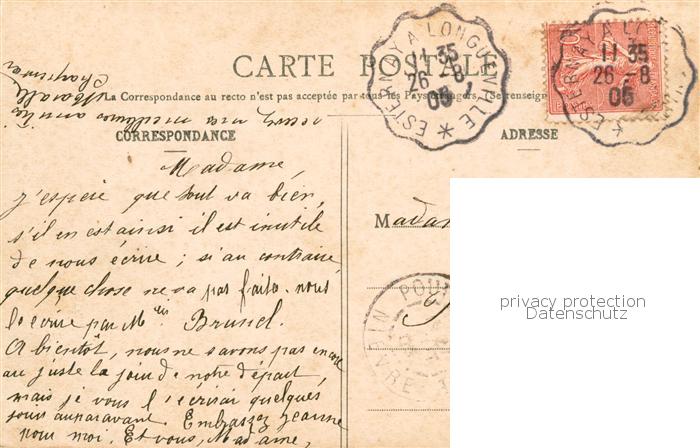 CARTE POSTALE
La Correspondance au recto n'est pas acceptée par tous les Pays étrangers. (Se renseigner
CORRESPONDANCE
ADRESSE
ESTERNAY A LONGUEVILLE *
11 35
26 -8
05
ESTERNAY A LO
11 35
26 -8
05
Madame,
J'espère que tout va bien,
s'il en est ainsi il est inutile
de nous écrire ; si au contraire
quelque chose ne va pas faites-nous
le écrire par Mlle Brunel.
A bientôt, nous ne savons pas encore
au juste le jour de notre départ,
mais je vous l'écrirai quelques
jours auparavant. Embrassez Jeanne
pour moi. Et vous, Madame,
recevez mes meilleures amitiés
Madam
POU
privacy protection
Datenschutz